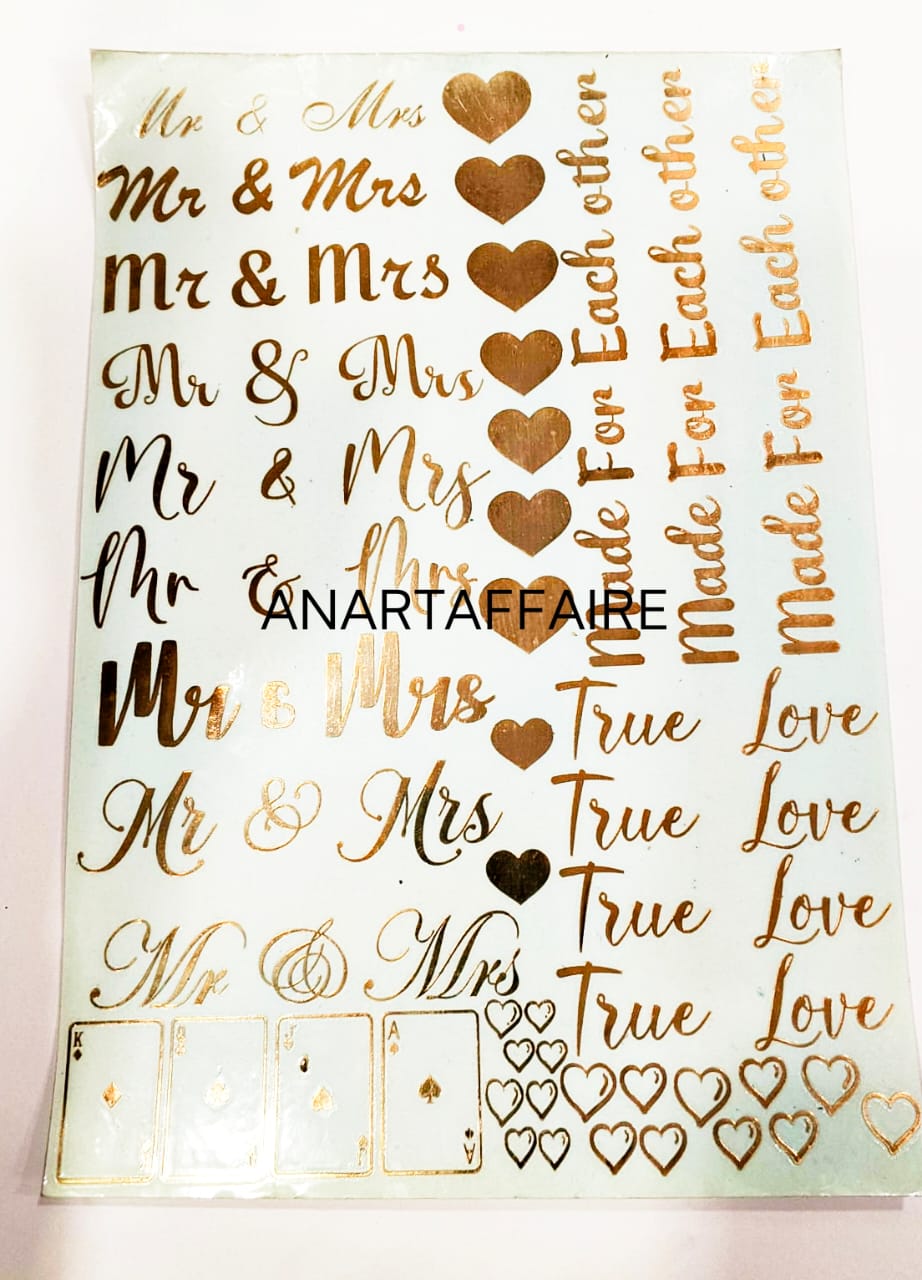 Mr & Mrs
Mr & Mrs
Mr & Mrs
Mr & Mrs
Mr & Mrs
Mr & Mrs
ANARTAFFAIRE
Mr & Mrs
Mr & Mrs
Mr & Mrs
Made For Each other
Made For Each other
Made For Each other
True Love
True Love
True Love
True Love
K
J
A
A